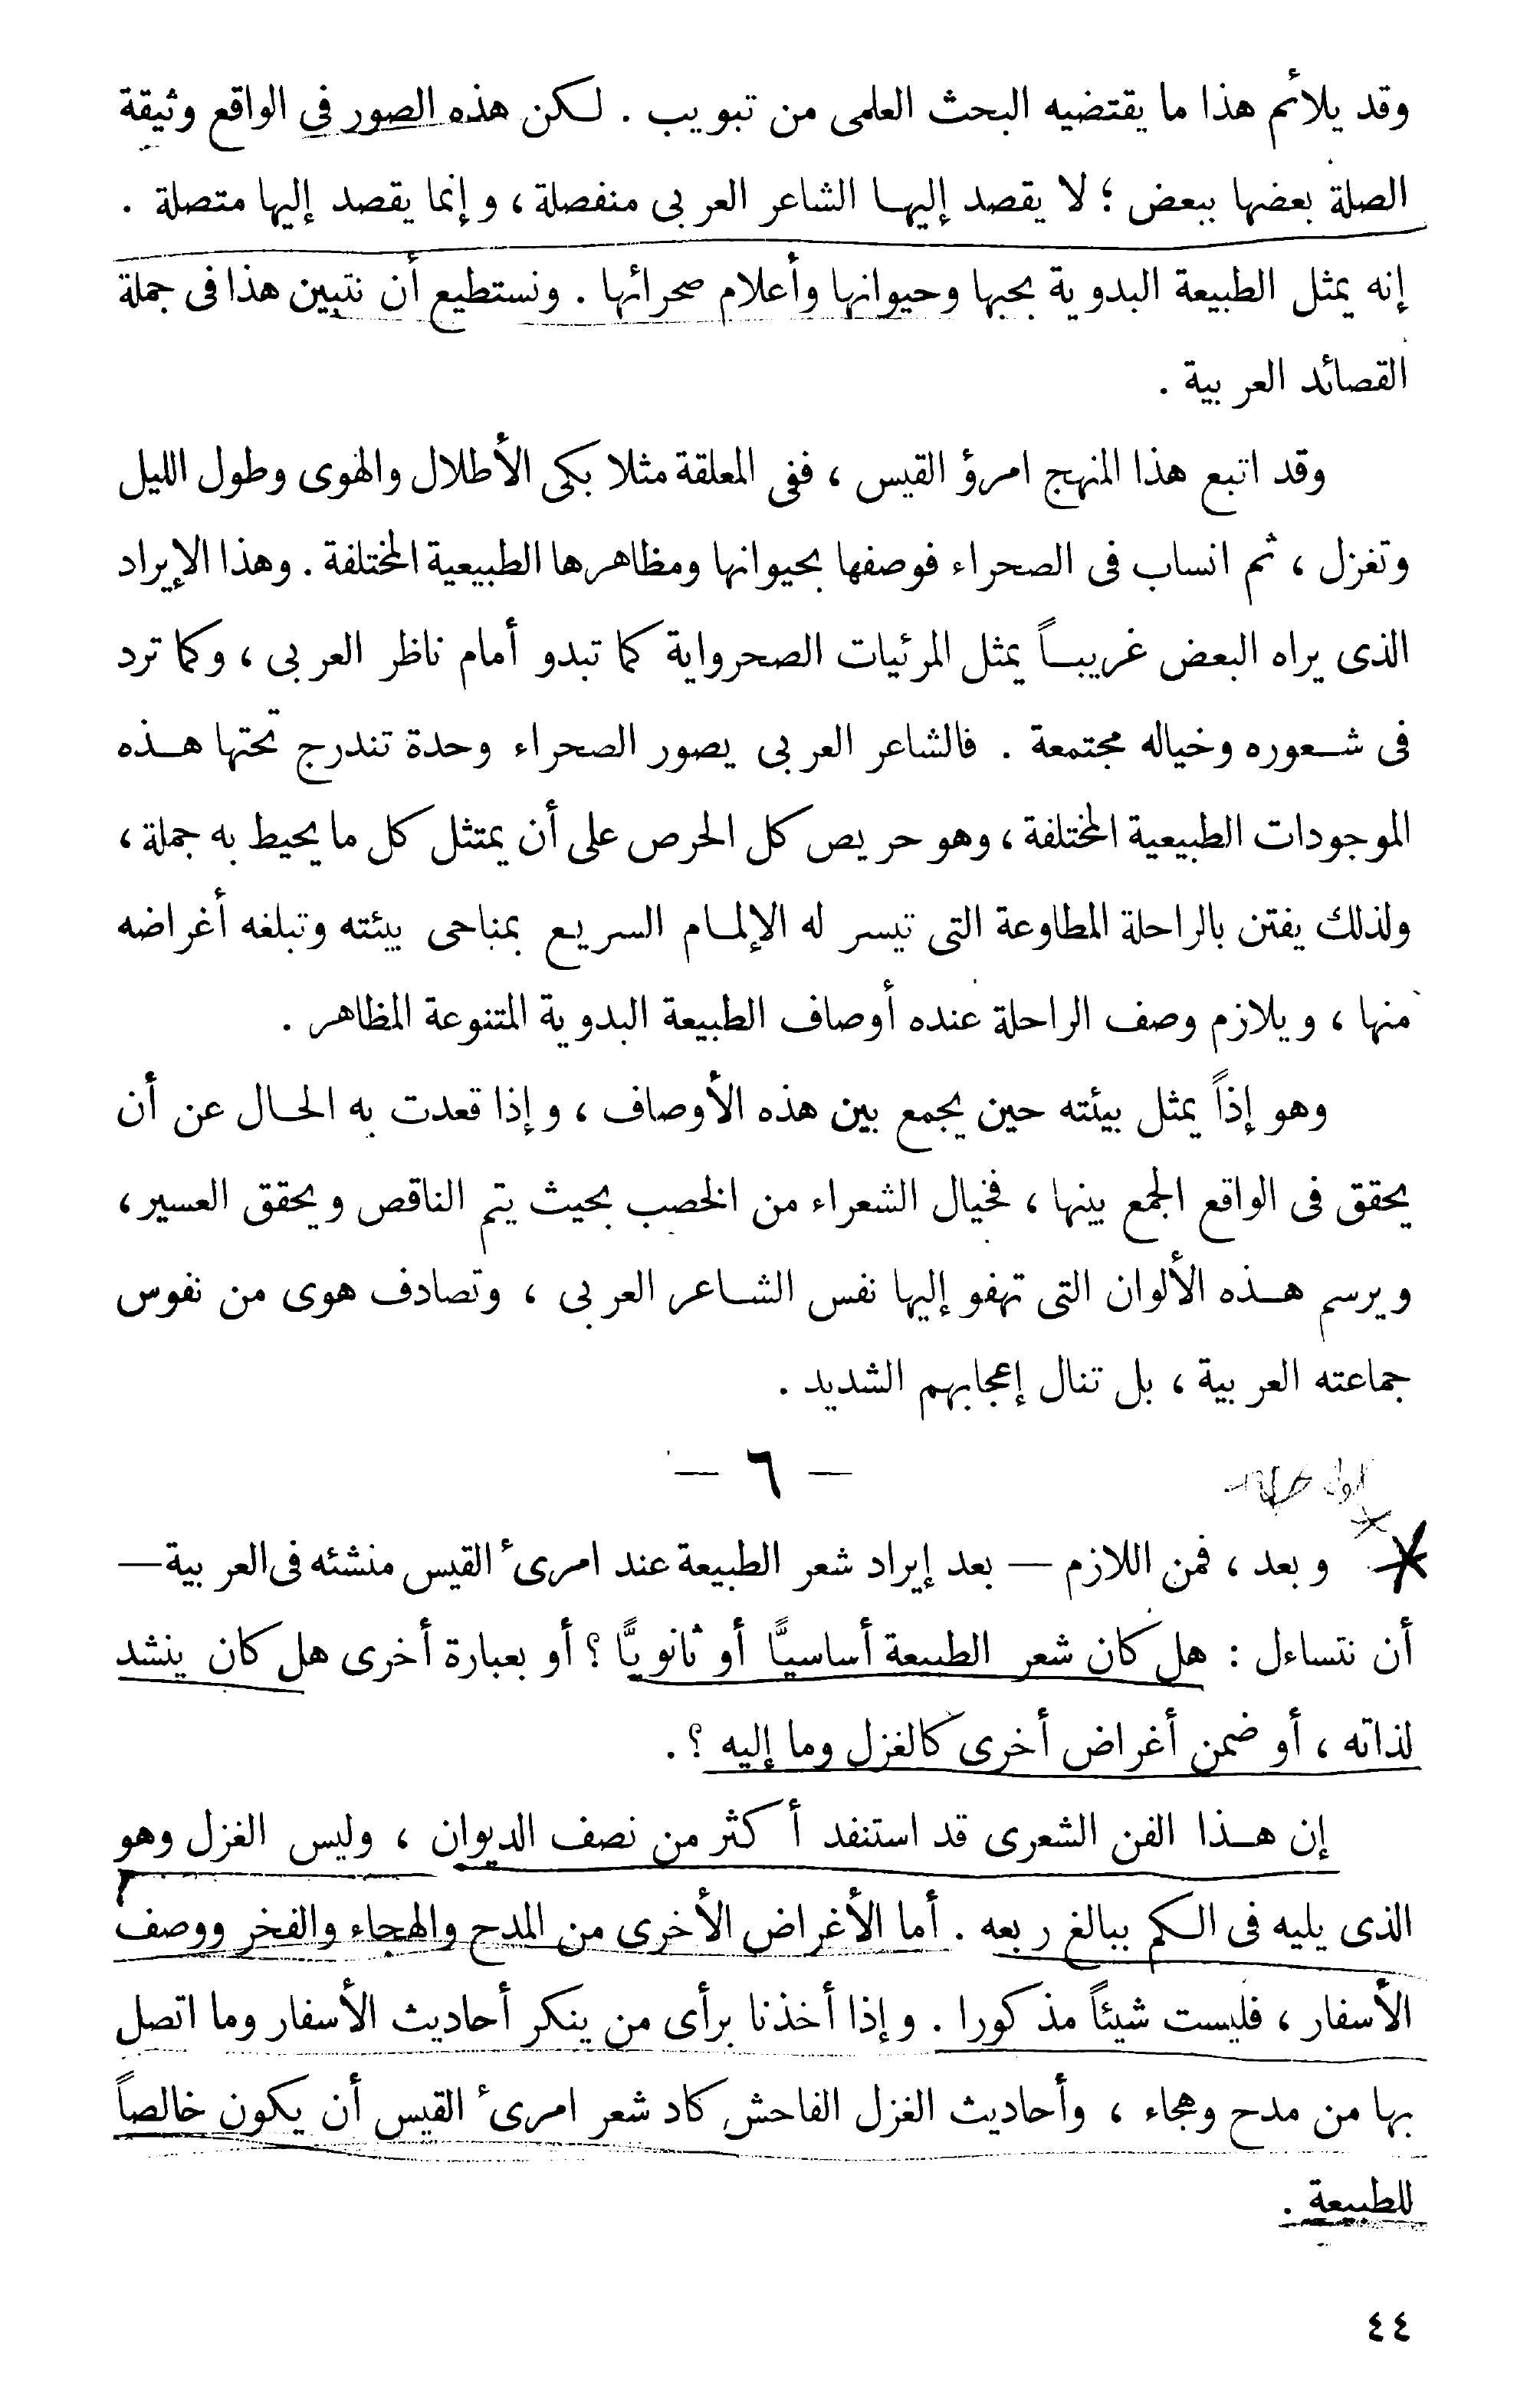 وقد يلائم هذا ما يقتضيه البحث العلمى من تبويب . لكن هذه الصور فى الواقع وثيقة
الصلة بعضها ببعض ؛ لا يقصد إليها الشاعر العربى منفصلة ، وإنما يقصد إليها متصلة .
إنه يمثل الطبيعة البدوية بحبها وحيوانها وأعلام صحرائها . ونستطيع أن نتبين هذا فى جملة
القصائد العربية .
وقد اتبع هذا المنهج امرؤ القيس ، ففى المعلقة مثلا بكى الأطلال والهوى وطول الليل
وتغزل ، ثم انساب فى الصحراء فوصفها بحيوانها ومظاهرها الطبيعية المختلفة . وهذا الإيراد
الذى يراه البعض غريباً يمثل المرئيات الصحرواية كما تبدو أمام ناظر العربى ، وكما ترد
فى شعوره وخياله مجتمعة . فالشاعر العربى يصور الصحراء وحدة تندرج تحتها هذه
الموجودات الطبيعية المختلفة ، وهو حريص كل الحرص على أن يمتثل كل ما يحيط به جملة ،
ولذلك يفتن بالراحلة المطاوعة التى تيسر له الإلمام السريع بمناحى بيئته وتبلغه أغراضه
منها ، ويلازم وصف الراحلة عنده أوصاف الطبيعة البدوية المتنوعة المظاهر .
وهو إذاً يمثل بيئته حين يجمع بين هذه الأوصاف ، وإذا قعدت به الحال عن أن
يحقق فى الواقع الجمع بينها ، فخيال الشعراء من الخصب بحيث يتم الناقص ويحقق العسير ،
ويرسم هذه الألوان التى تهفو إليها نفس الشاعر العربى ، وتصادف هوى من نفوس
جماعته العربية ، بل تنال إعجابهم الشديد .
— ٦ —
وبعد ، فمن اللازم — بعد إيراد شعر الطبيعة عند امرىء القيس منشئه فى العربية —
أن نتساءل : هل كان شعر الطبيعة أساسيًّا أو ثانويًّا ؟ أو بعبارة أخرى هل كان ينشد
لذاته ، أو ضمن أغراض أخرى كالغزل وما إليه ؟ .
إن هذا الفن الشعرى قد استنفد أكثر من نصف الديوان ، وليس الغزل وهو
الذى يليه فى الكم ببالغ ربعه . أما الأغراض الأخرى من المدح والهجاء والفخر ووصف
الأسفار ، فليست شيئاً مذكورا . وإذا أخذنا برأى من ينكر أحاديث الأسفار وما اتصل
بها من مدح وهجاء ، وأحاديث الغزل الفاحش كاد شعر امرىء القيس أن يكون خالصاً
للطبيعة .
٤٤